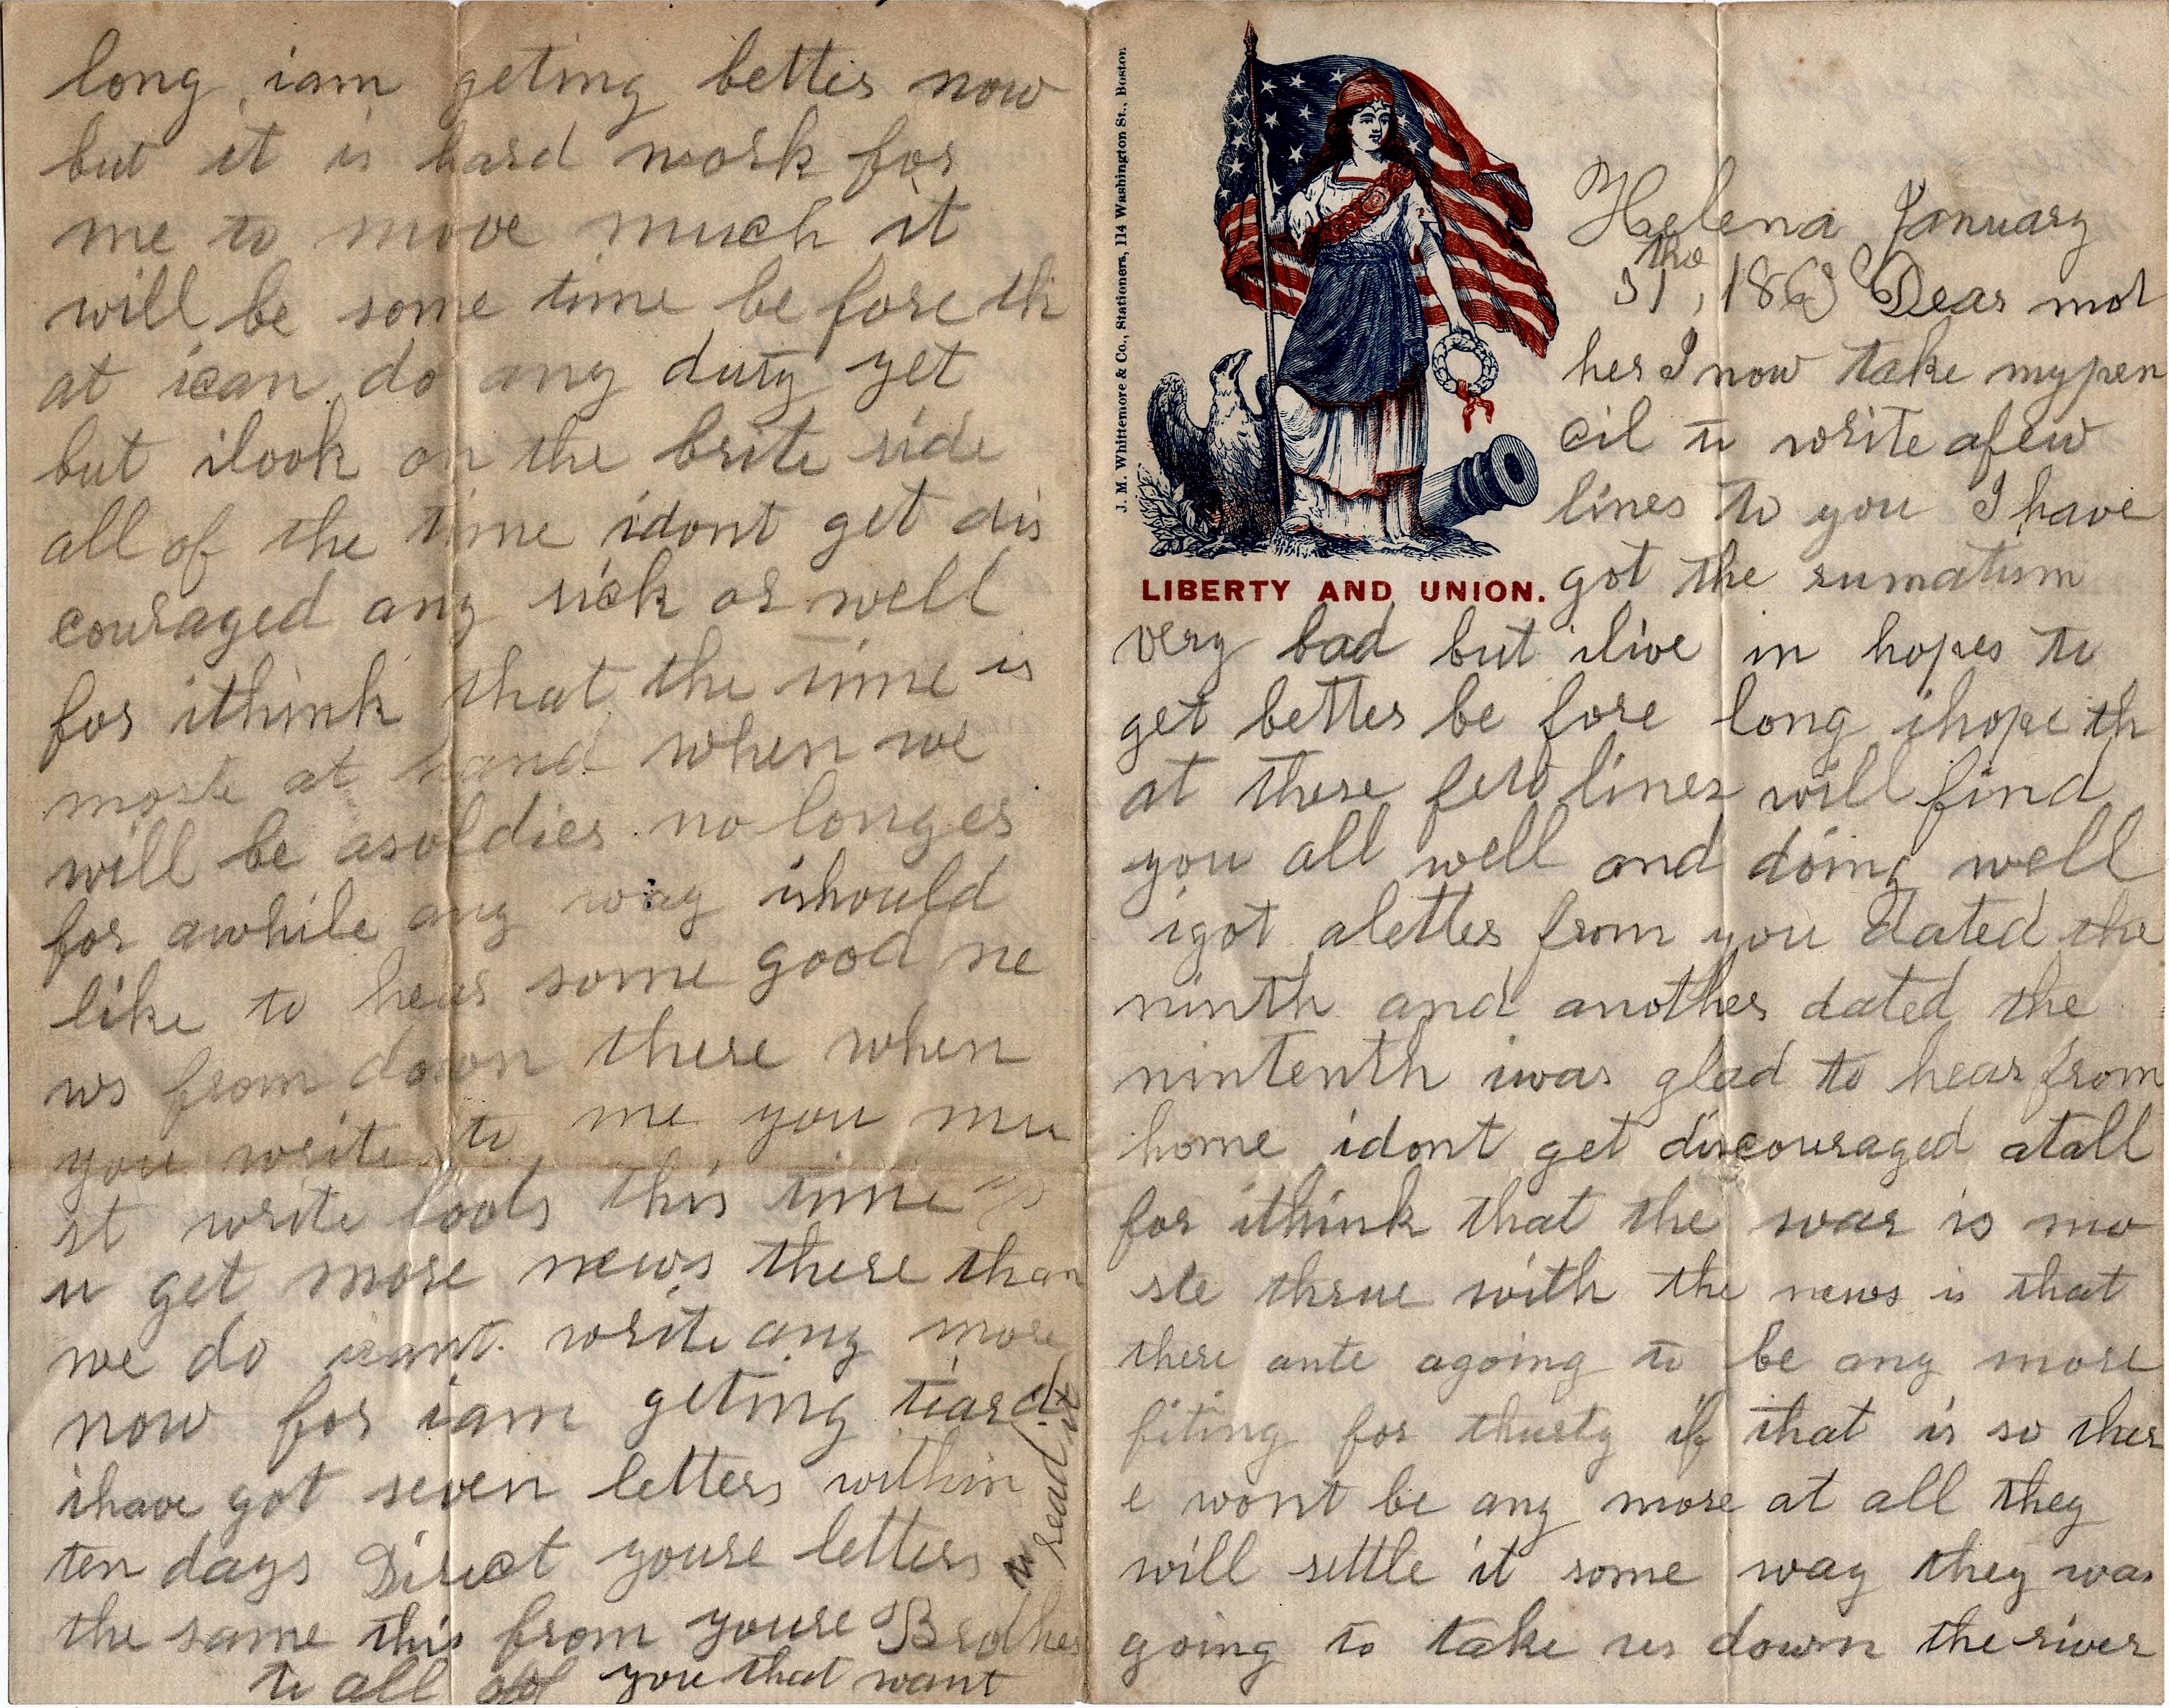 J. M. Whittemore & Co., Stationers, 114 Washington St., Boston
LIBERTY AND UNION.
Helena January
the
31, 1863 Dear mot
her I now take mypen
cil to write afew
lines to you I have
got the rumatism
very bad but ilive in hopes to
get better be fore long ihope th
at these few lines will find
you all well and doing well
igot aletter from you dated the
ninth and another dated the
nintenth iwas glad to hear from
home idont get discouraged atall
for ithink that the war is mo
ste thrue with the news is that
there ante agoing to be any more
fiting for thirty if that is so ther
e wont be any more at all they
will settle it some way they was
going to take us down the river
long iam geting better now
but it is hard work for
me to move much it
will be some time be fore th
at ican do any duty yet
but ilook on the brite side
all of the time idont get dis
couraged any sick or well
for ithink that the time is
moste at hand when we
will be asoldier no longer
for awhile any way ishould
like to hear some good ne
ws from down there when
you write to me you mu
st write lots this time yo
u get more news there than
we do icant write any more
now for iam geting tiard
ihave got seven letters within
ten days Direct youre letters
the same this from youre Brother
to all of you that want
to read it